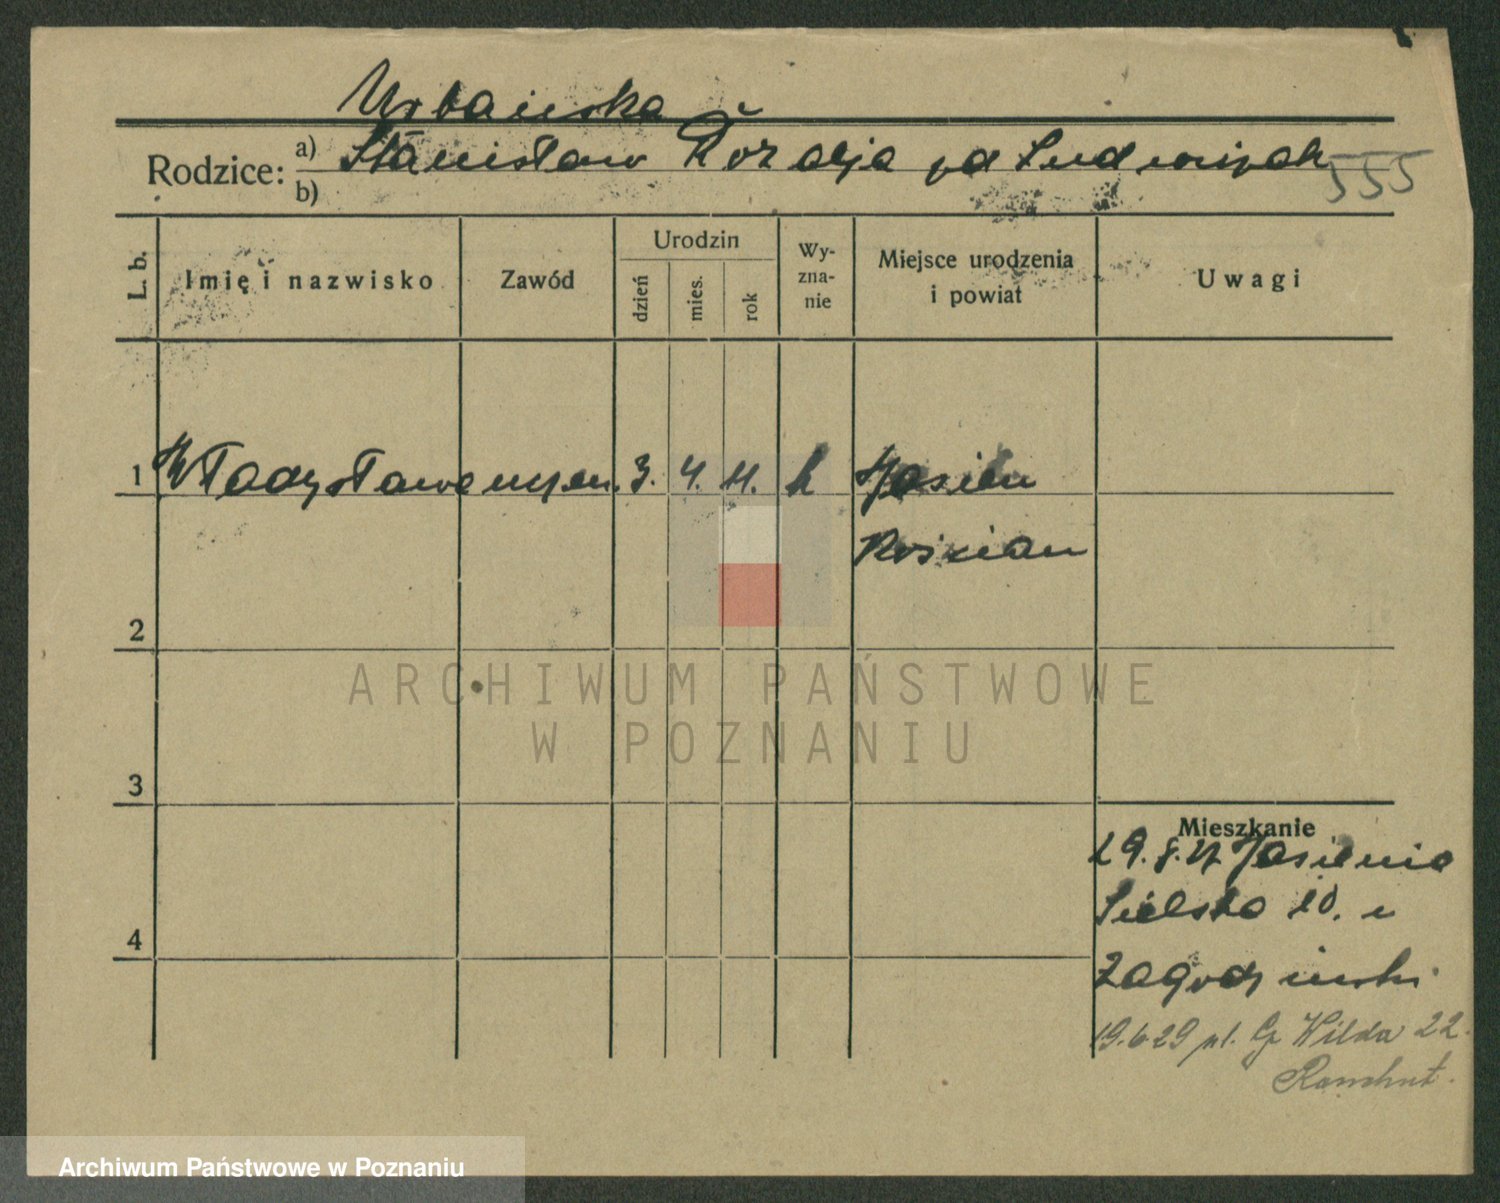 Urbańska
Rodzice: a) Stanisław Rozalja zd Ludwiczak
b)
555
L. b.
Imię i nazwisko
Zawód
Urodzin
dzień
mies.
rok
Wy-
zna-
nie
Miejsce urodzenia
i powiat
Uwagi
1 Władysława 3. 4. 11. k Jasień
Kościan
2
ARCHIWUM PAŃSTWOWE
W POZNANIU
3
Mieszkanie
29.8.27 Jasienia
Sielska 10. u
4
Zagodzinski
19.6.29 Wilda 22.
Archiwum Państwowe w Poznaniu